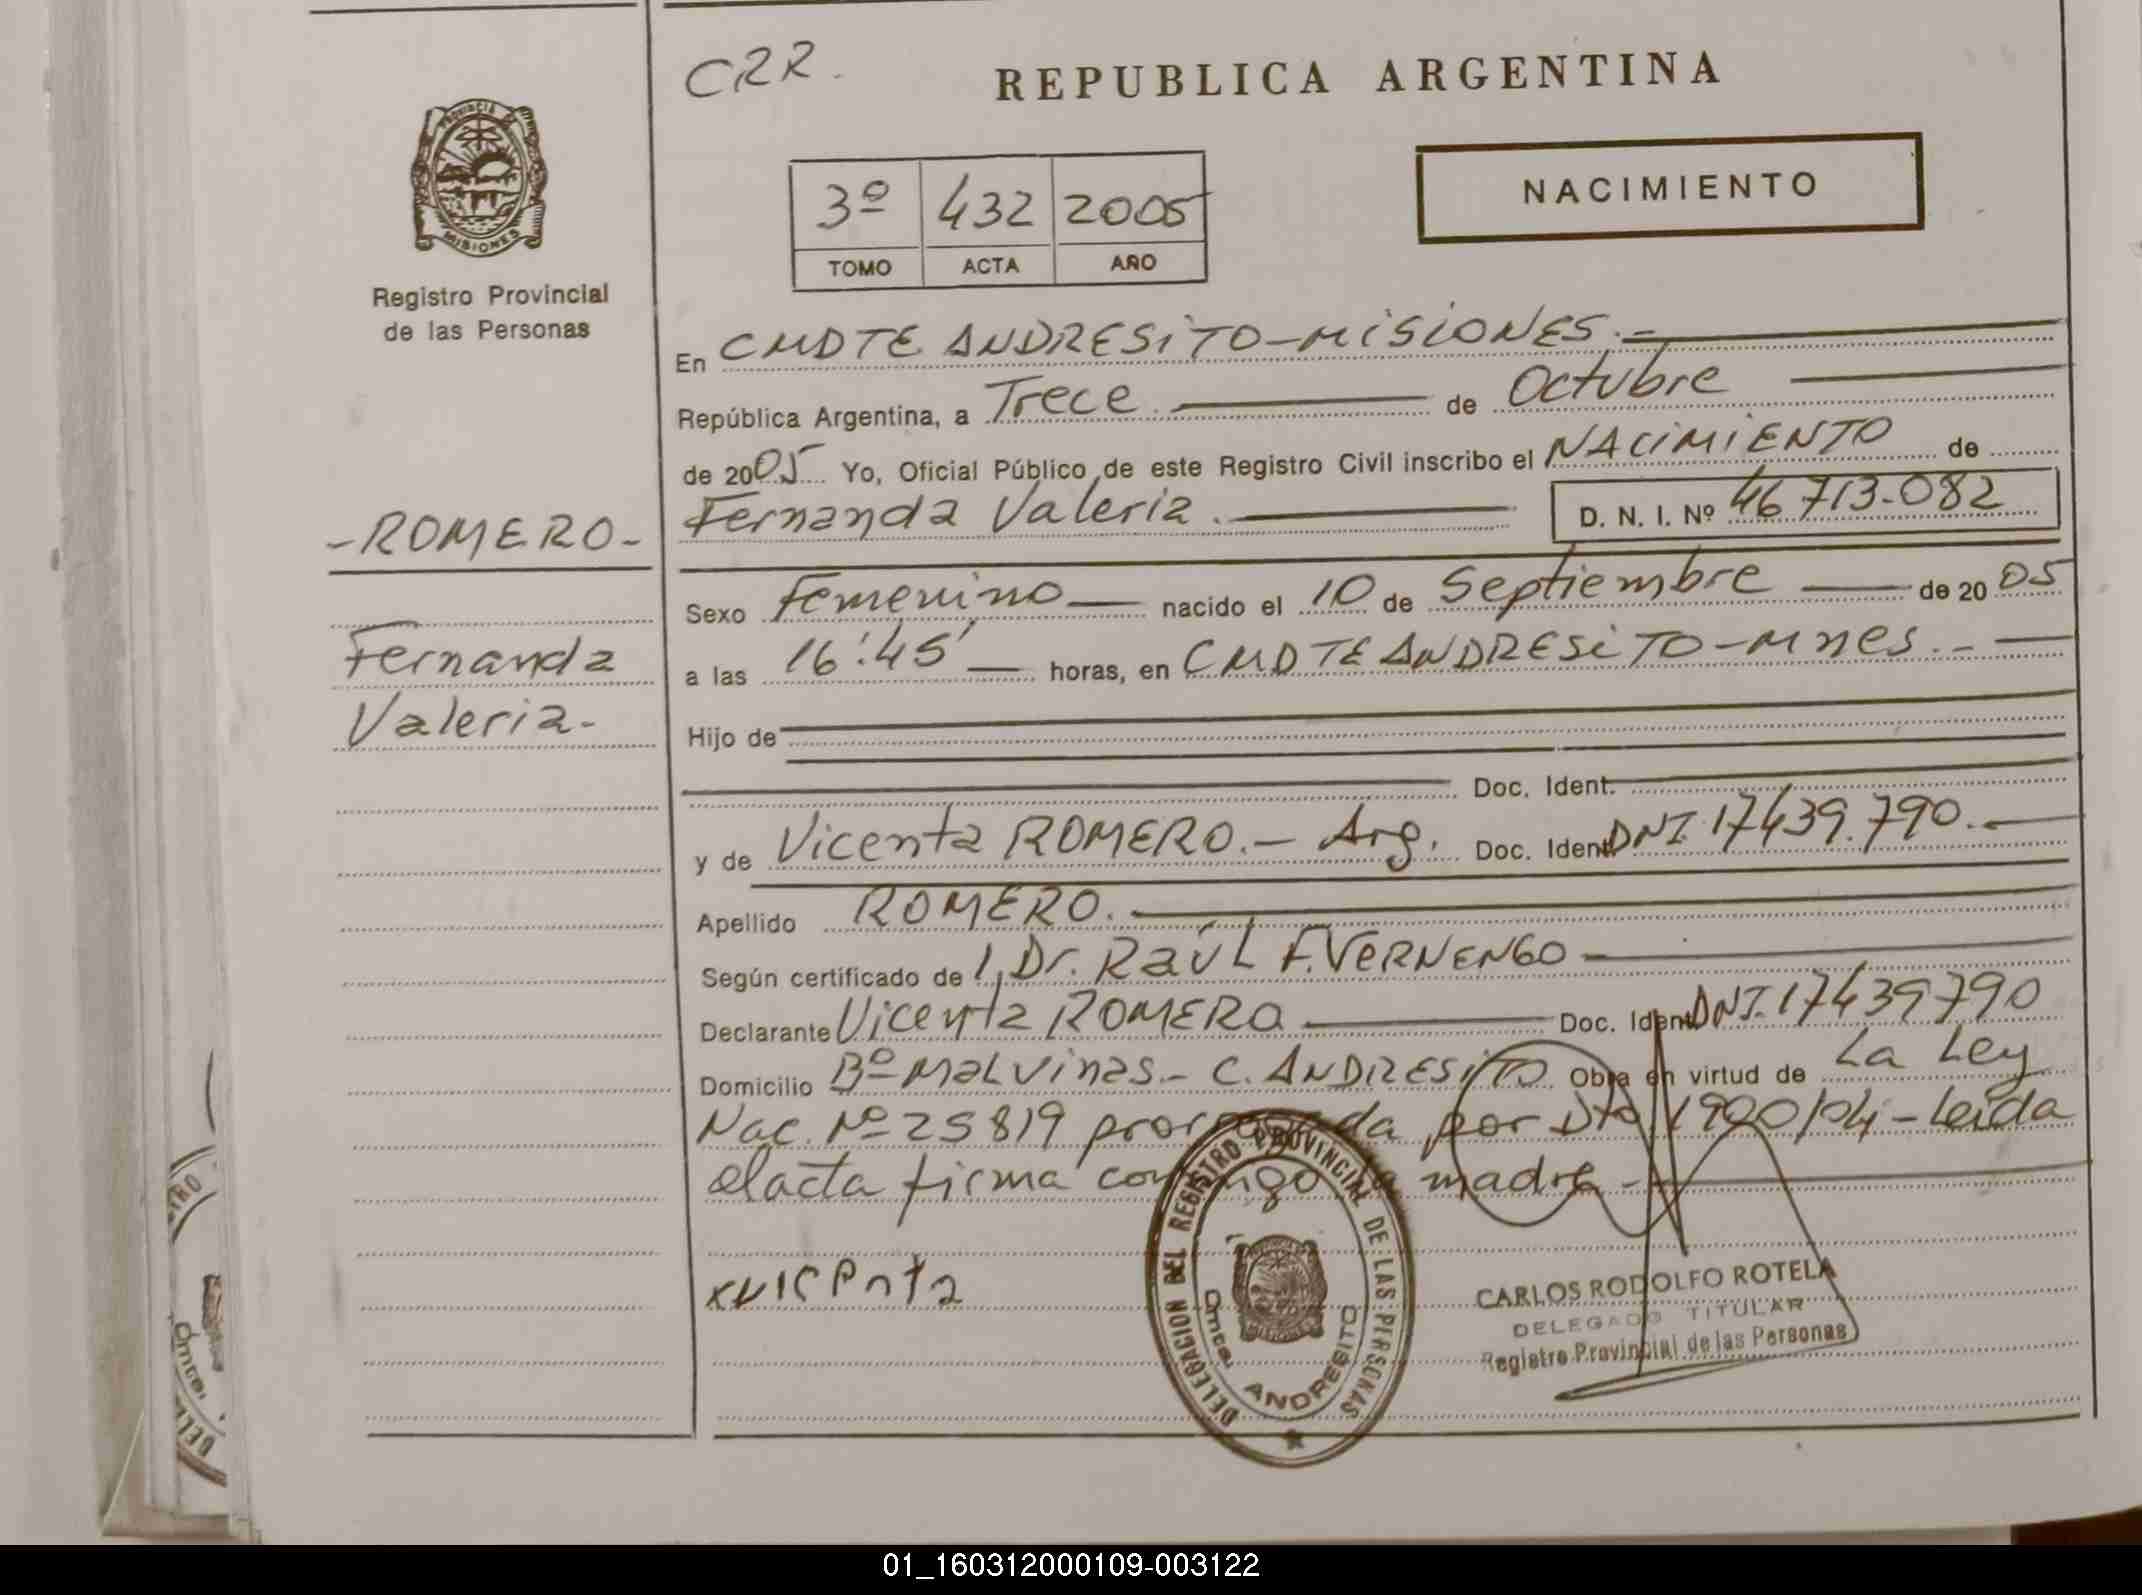 CRR.
REPUBLICA ARGENTINA
PROVINCIA
MISIONES
Registro Provincial
de las Personas
3º 432 2005
TOMO ACTA AÑO
NACIMIENTO
En CMDTE ANDRESiTO-MiSiONES.-
República Argentina, a Trece. de Octubre
de 2005 Yo, Oficial Público de este Registro Civil inscribo el NACiMiENTO de
Fernanda Valeria. D. N. I. Nº 46713.082
-ROMERO-
Fernanda
Valeria-
Sexo Femenino nacido el 10 de Septiembre de 2005
a las 16:45' horas, en CMDTE ANDRESiTO-Mnes.-
Hijo de
Doc. Ident.
y de Vicenta ROMERO.- Arg. Doc. Ident. DNI 17439.790.-
Apellido ROMERO.
Según certificado de l, Dr. Raúl F. VERNENGO
Declarante Vicenta ROMERO Doc. Ident. DNI. 17439790
Domicilio Bº Malvinas.- C. ANDRESiTO Obra en virtud de La Ley
Nac. Nº 25819 prorrogada por Dto 1900/04-Leida
el acta firma conmigo la madre-
Vicenta
DELEGACION DEL REGISTRO PROVINCIAL DE LAS PERSONAS
Cmte. ANDRESITO
CARLOS RODOLFO ROTELA
DELEGADO TITULAR
Registro Provincial de las Personas
01_160312000109-003122